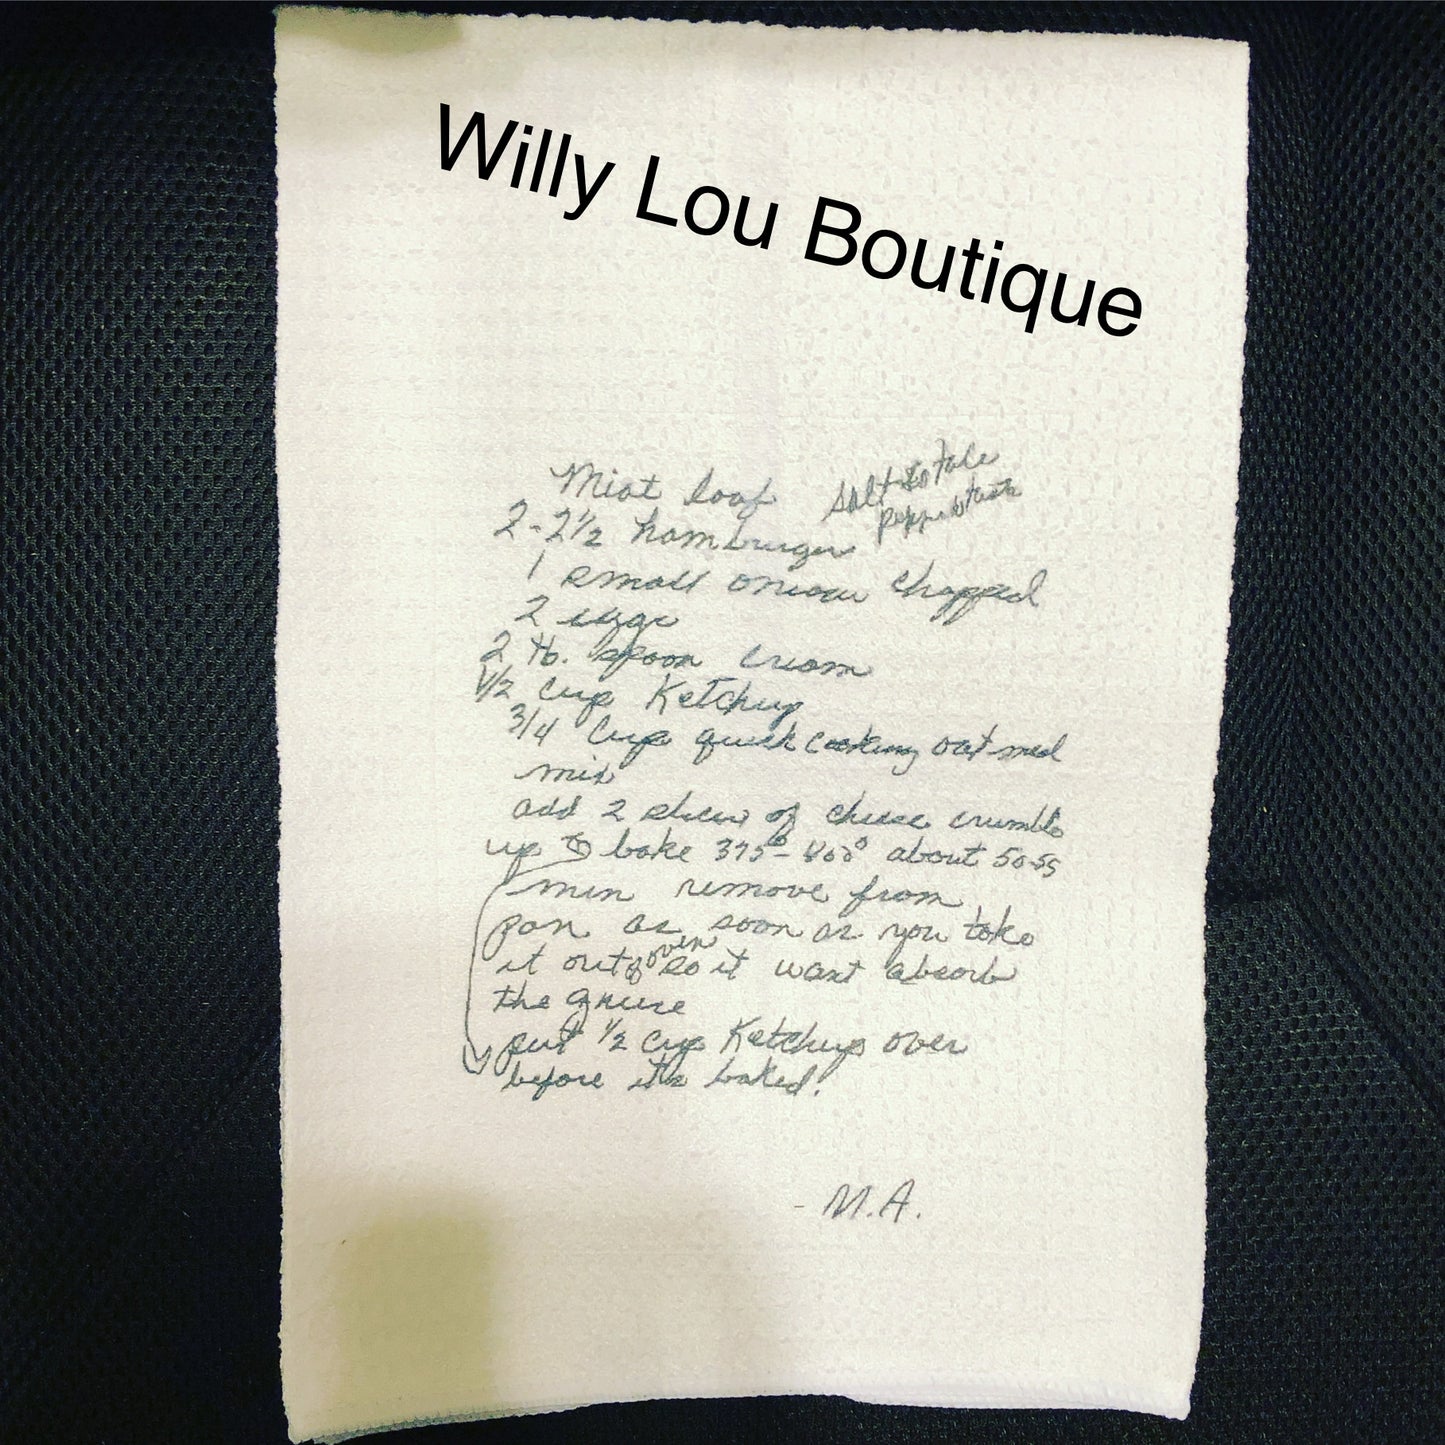 Willy Lou Boutique
Meat loaf
Salt to taste
pepper to taste
2-2½ hamburger
1 small onion chopped
2 eggs
2 tb. spoon cream
1/2 cup Ketchup
3/4 Cup quick cooking oatmeal
mix
add 2 slices of cheese crumble
up to bake 375°-400° about 50-55
min remove from
pan as soon as you take
it out of oven so it want absorb
the grease
put ½ cup Ketchup over
before it's baked!
- M.A.